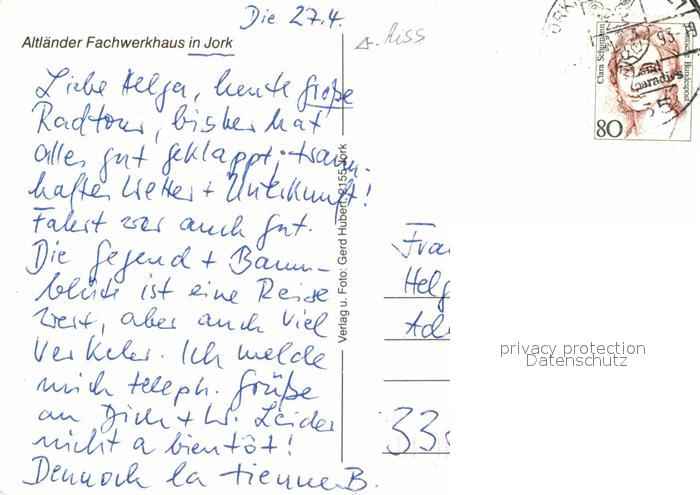 Die 27.4.
Altländer Fachwerkhaus in Jork
Riss
Liebe Helga, heute große
Radtour, bisher hat
alles gut geklappt, traum-
haftes Wetter + Unterkunft!
Fahrt war auch gut.
Die Gegend + Baum-
blüte ist eine Reise
wert, aber auch viel
Verkehr. Ich melde
mich teleph. Grüße
an Dich + W. Leider
nicht a bientôt!
Dennoch la tienne B.
Verlag u. Foto: Gerd Hubert, 2155 Jork
Clara Schumann
Deutsche Bundespost
80
Frau
Helg
Ad
33
privacy protection
Datenschutz